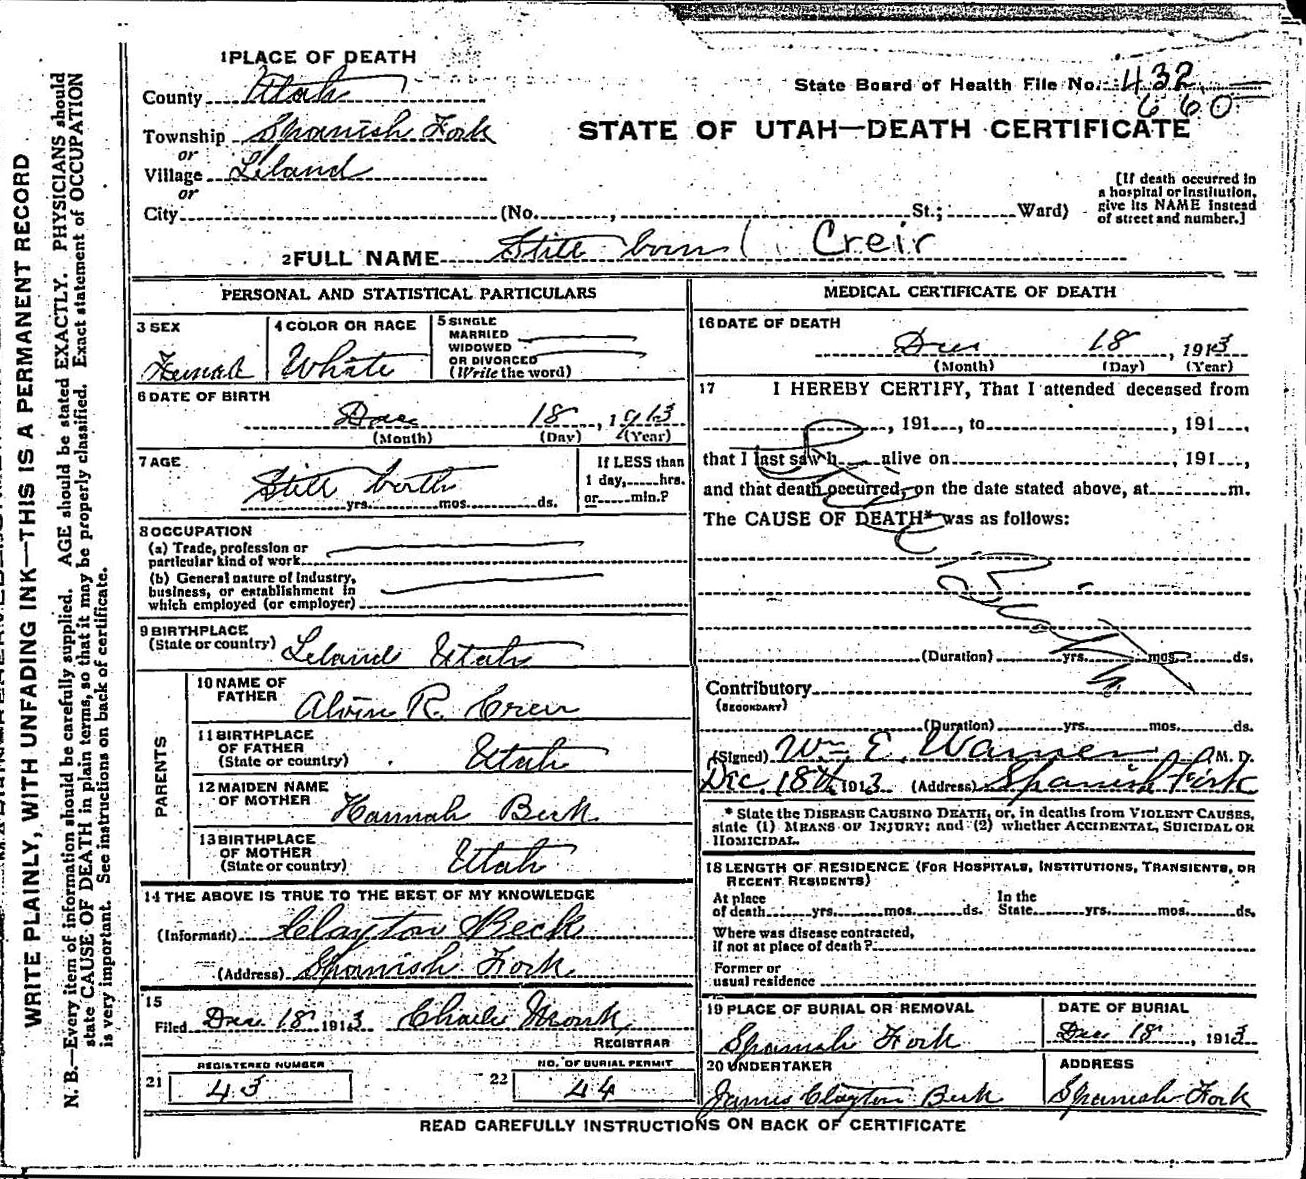 1 PLACE OF DEATH
County Utah
State Board of Health File No. 432
660
Township Spanish Fork
STATE OF UTAH—DEATH CERTIFICATE
or
Village Leland
or
City (No. , St.; Ward)
[If death occurred in
a hospital or institution,
give its NAME instead
of street and number.]
2 FULL NAME Still born Creir
PERSONAL AND STATISTICAL PARTICULARS
3 SEX
Female
4 COLOR OR RACE
White
5 SINGLE
MARRIED
WIDOWED
OR DIVORCED
(Write the word)
6 DATE OF BIRTH
Dec 18, 1913
(Month) (Day) (Year)
7 AGE
Still birth
yrs. mos. ds.
If LESS than
1 day, hrs.
or min.?
8 OCCUPATION
(a) Trade, profession or
particular kind of work
(b) General nature of industry,
business, or establishment in
which employed (or employer)
9 BIRTHPLACE
(State or country) Leland Utah
PARENTS
10 NAME OF
FATHER Alvin R. Creer
11 BIRTHPLACE
OF FATHER
(State or country) Utah
12 MAIDEN NAME
OF MOTHER Hannah Beck
13 BIRTHPLACE
OF MOTHER
(State or country) Utah
14 THE ABOVE IS TRUE TO THE BEST OF MY KNOWLEDGE
(Informant) Clayton Beck
(Address) Spanish Fork
15
Filed Dec 18 1913 Charlie Monk
REGISTRAR
REGISTERED NUMBER
21 43
NO. OF BURIAL PERMIT
22 44
MEDICAL CERTIFICATE OF DEATH
16 DATE OF DEATH
Dec 18, 1913
(Month) (Day) (Year)
17 I HEREBY CERTIFY, That I attended deceased from
, 191 , to , 191 ,
that I last saw h alive on , 191 ,
and that death occurred, on the date stated above, at m.
The CAUSE OF DEATH* was as follows:
(Duration) yrs. mos. ds.
Contributory
(SECONDARY)
(Duration) yrs. mos. ds.
(Signed) Wm E. Warner M. D.
Dec. 18th 1913 (Address) Spanish Fork
* State the DISEASE CAUSING DEATH, or, in deaths from VIOLENT CAUSES,
state (1) MEANS OF INJURY; and (2) whether ACCIDENTAL, SUICIDAL OR
HOMICIDAL.
18 LENGTH OF RESIDENCE (FOR HOSPITALS, INSTITUTIONS, TRANSIENTS, OR
RECENT RESIDENTS)
At place
of death yrs. mos. ds.
In the
State yrs. mos. ds.
Where was disease contracted,
if not at place of death?
Former or
usual residence
19 PLACE OF BURIAL OR REMOVAL
Spanish Fork
DATE OF BURIAL
Dec 18, 1913
20 UNDERTAKER
James Clayton Beck
ADDRESS
Spanish Fork
READ CAREFULLY INSTRUCTIONS ON BACK OF CERTIFICATE
WRITE PLAINLY, WITH UNFADING INK—THIS IS A PERMANENT RECORD
N. B.—Every item of information should be carefully supplied. AGE should be stated EXACTLY. PHYSICIANS should
state CAUSE OF DEATH in plain terms, so that it may be properly classified. Exact statement of OCCUPATION
is very important. See instructions on back of certificate.